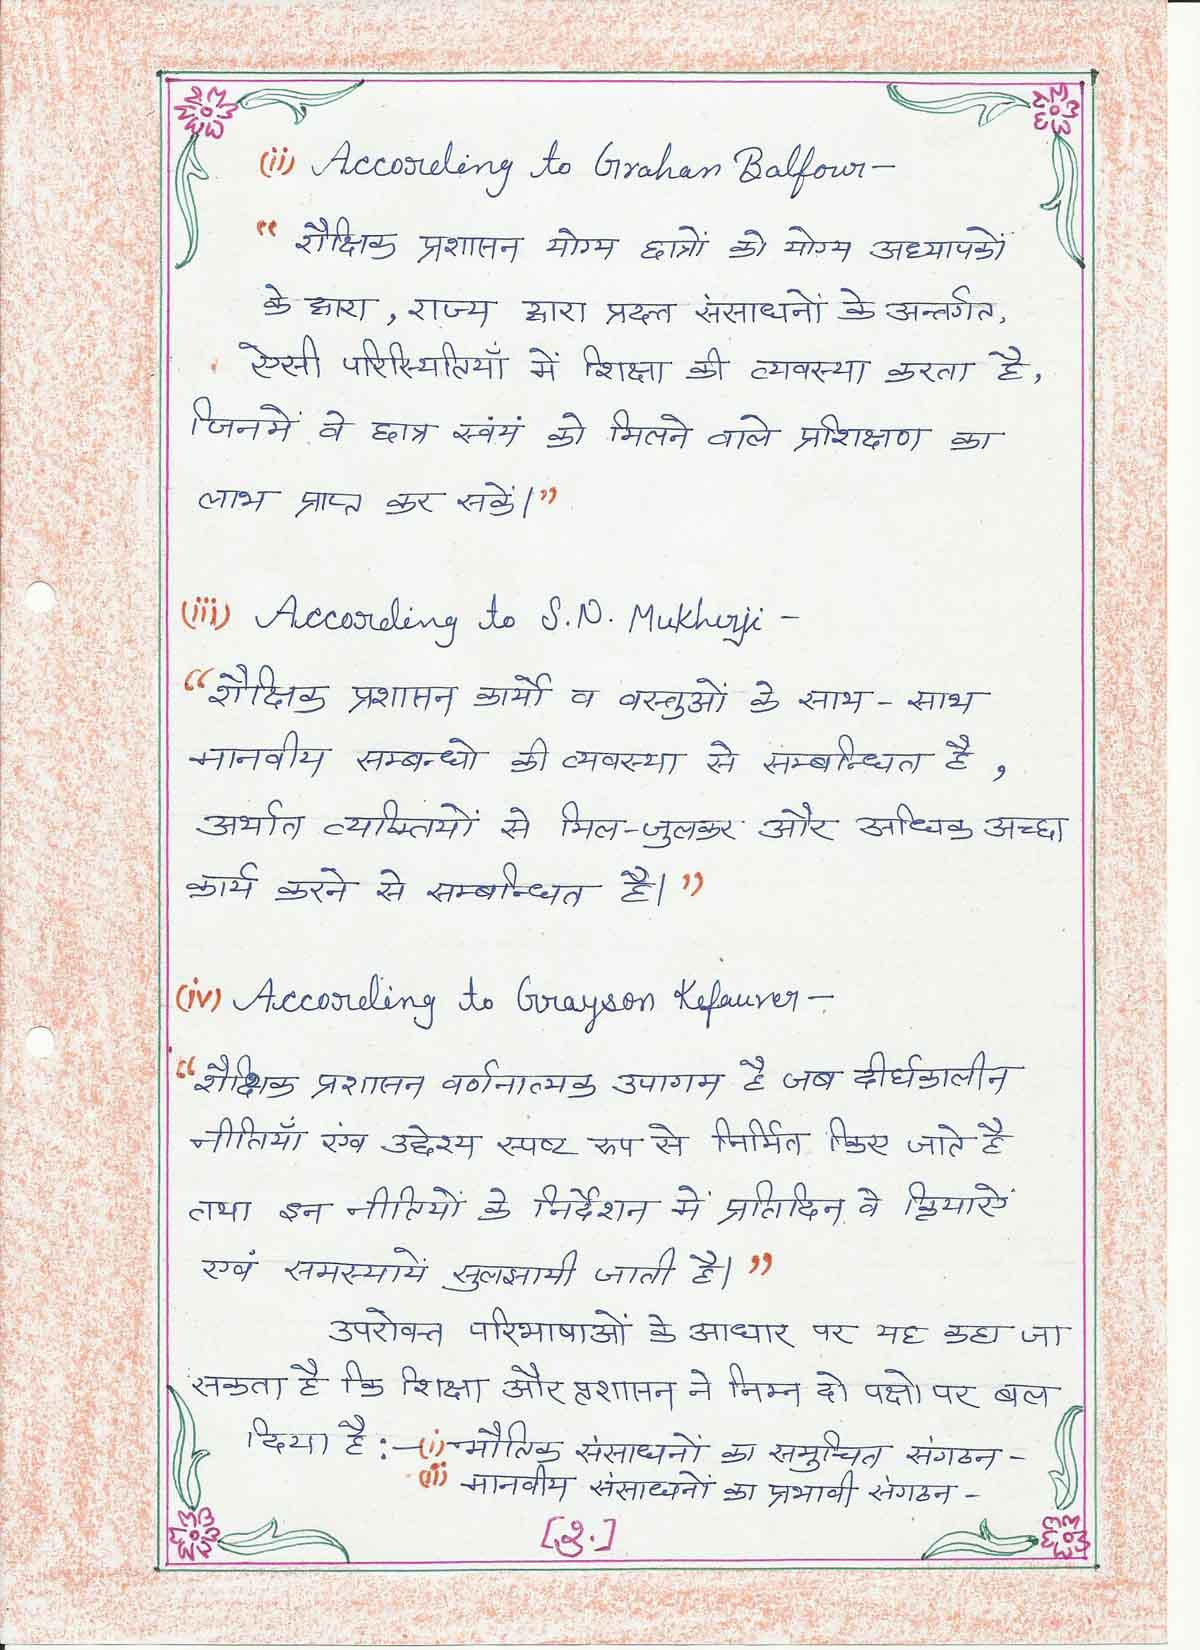 (ii) According to Grahan Balfour –
“ शैक्षिक प्रशासन योग्य छात्रों को योग्य अध्यापकों
के द्वारा , राज्य द्वारा प्रदत्त संसाधनों के अन्तर्गत,
ऐसी परिस्थितियाँ में शिक्षा की व्यवस्था करता है,
जिनमें वे छात्र स्वंयं को मिलने वाले प्रशिक्षण का
लाभ प्राप्त कर सकें।”
(iii) According to S.N. Mukherji –
“शैक्षिक प्रशासन कार्यों व वस्तुओं के साथ - साथ
मानवीय सम्बन्धो की व्यवस्था से सम्बन्धित है ,
अर्थात व्यक्तियों से मिल-जुलकर और अधिक अच्छा
कार्य करने से सम्बन्धित है। ”
(iv) According to Grayson Kefauver –
“शैक्षिक प्रशासन वर्णनात्मक उपागम है जब दीर्घकालीन
नीतियाँ एंव उद्देश्य स्पष्ट रूप से निर्मित किए जाते है
तथा इन नीतियों के निर्देशन में प्रतिदिन वे क्रियाऐं
एवं समस्यायें सुलझायी जाती है। ”
उपरोक्त परिभाषाओं के आधार पर यह कहा जा
सकता है कि शिक्षा और प्रशासन ने निम्न दो पक्षो पर बल
दिया है :– (i) भौतिक संसाधनों का समुचित संगठन –
(ii) मानवीय संसाधनों का प्रभावी संगठन –